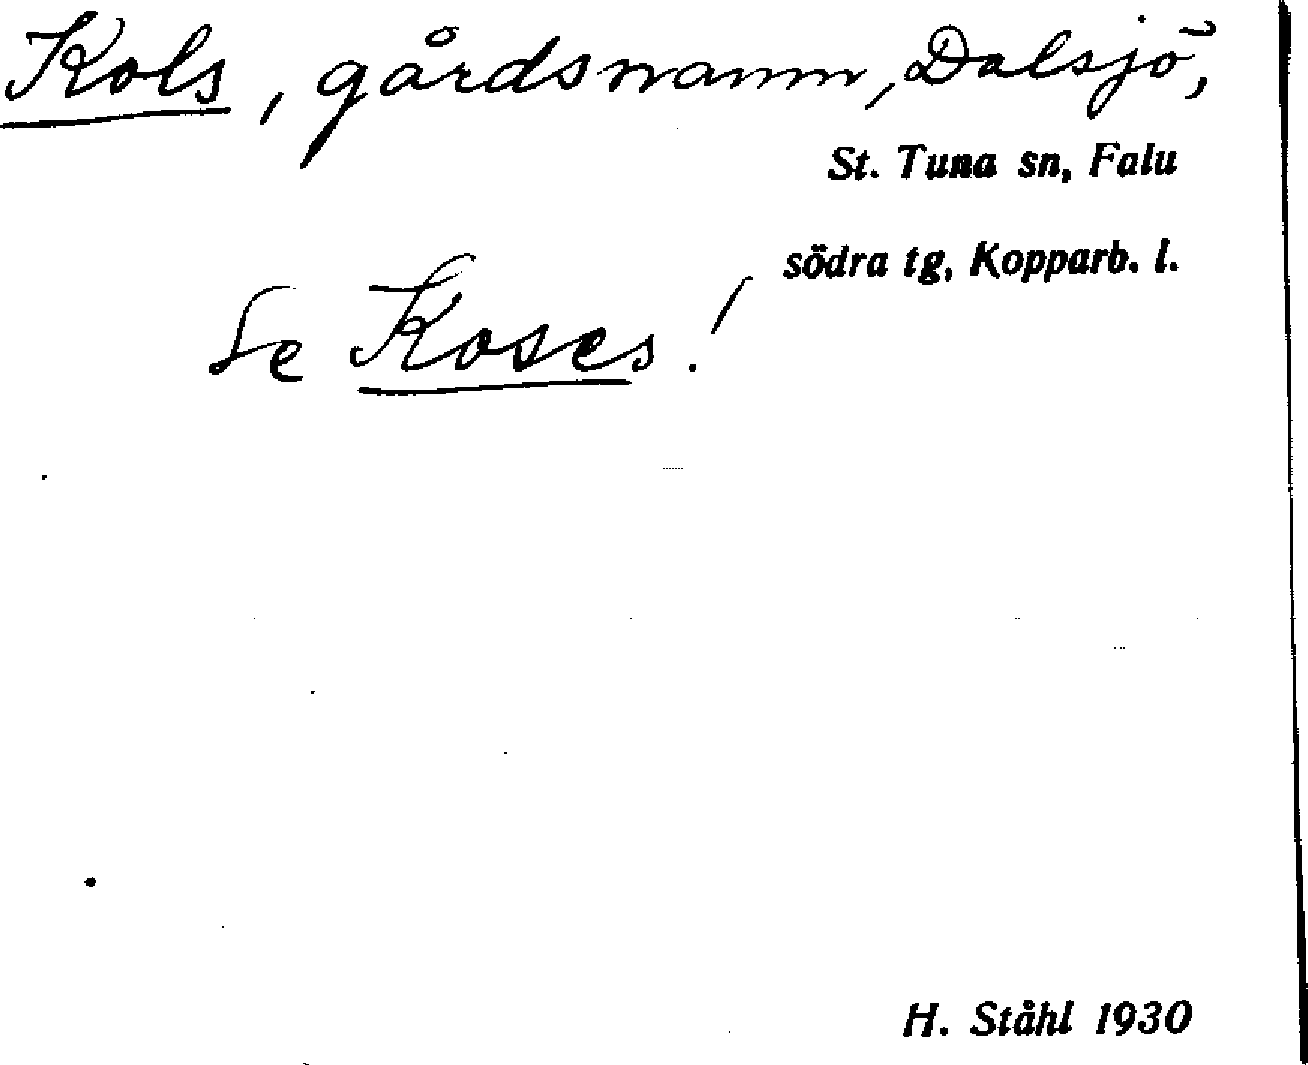 Kols, gårdsnamn, Dalsjö,
St. Tuna sn, Falu
södra tg, Kopparb. l.
Se Koses!
H. Ståhl 1930